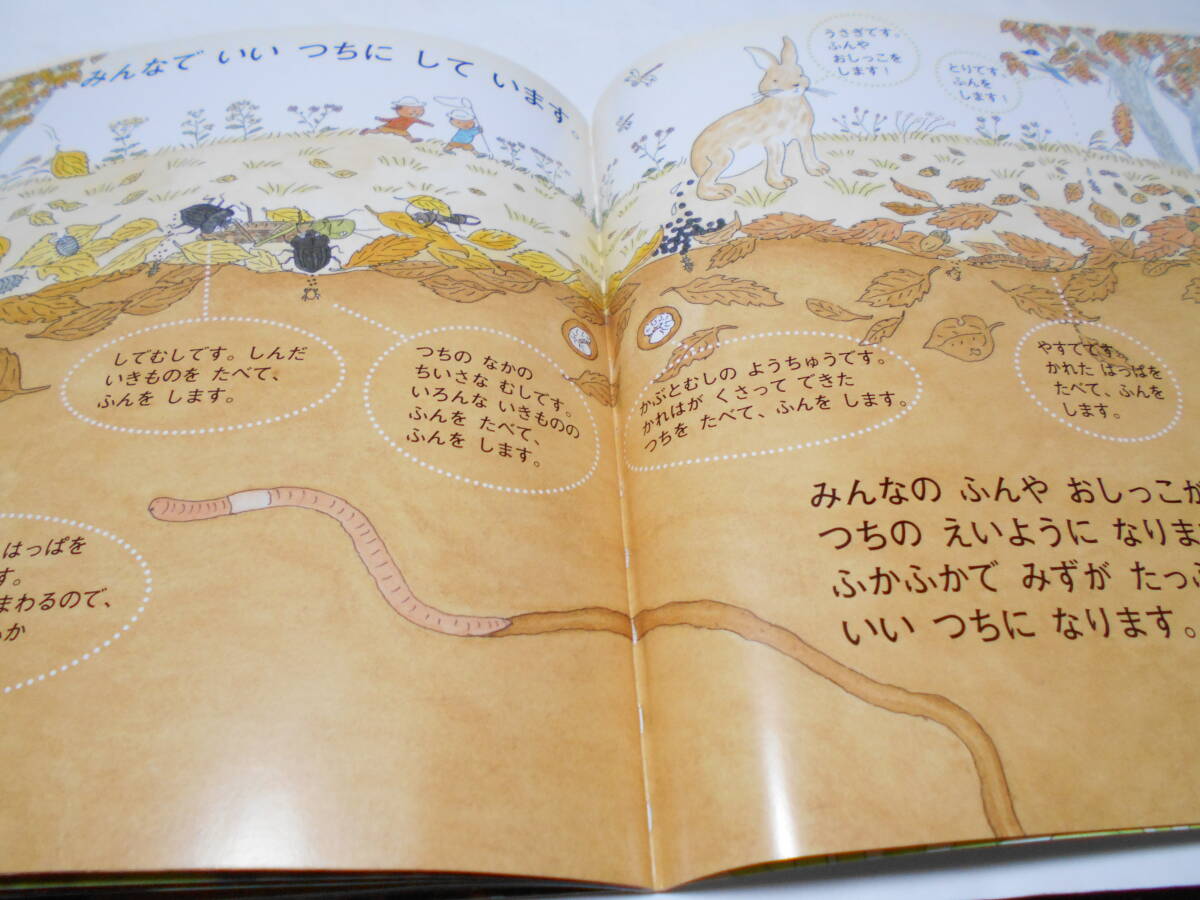 みんなで いい つちに して います。
うさぎです。
ふんや
おしっこを
します!
とりです。
ふんを
します!
しでむしです。しんだ
いきものを たべて、
ふんを します。
つちの なかの
ちいさな むしです。
いろんな いきものの
ふんを たべて、
ふんを します。
かぶとむしの ようちゅうです。
かれはが くさって できた
つちを たべて、ふんを します。
やすでです。
かれた はっぱを
たべて、ふんを
します。
はっぱを
す。
まわるので、
か
みんなの ふんや おしっこが
つちの えいように なりま
ふかふかで みずが たっ
いい つちに なります。